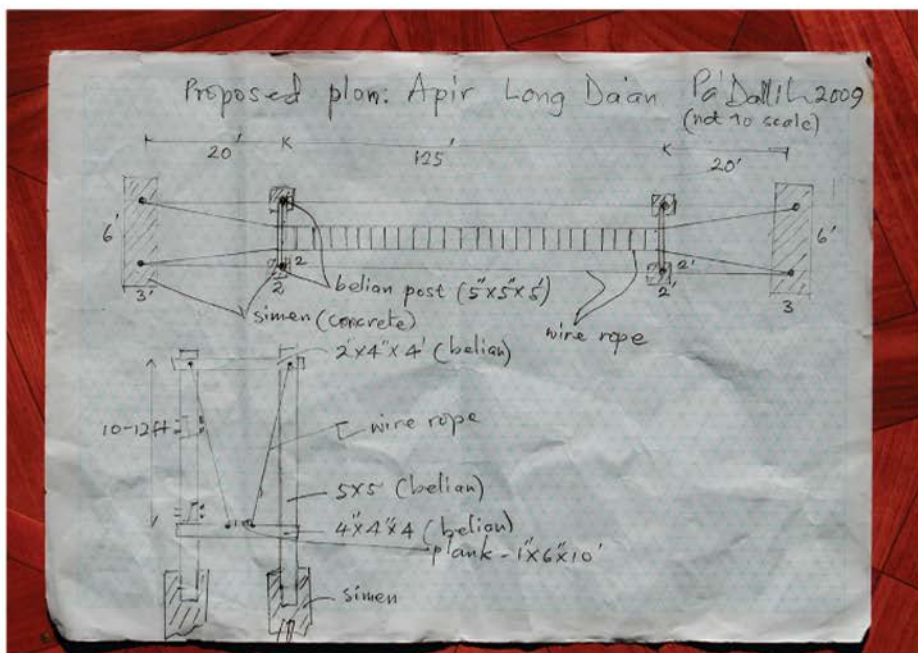 Proposed plan: Apir Long Da'an Pa' Dallih 2009
(not to scale)
20' 125' 20'
6' 6'
2 2'
3' 2 belian post (5"x5"x5') 2' 3
simen (concrete) wire rope
2'x4"x4' (belian)
10-12ft wire rope
5x5 (belian)
4"x4"x4 (belian)
plank - 1"x6"x10'
simen